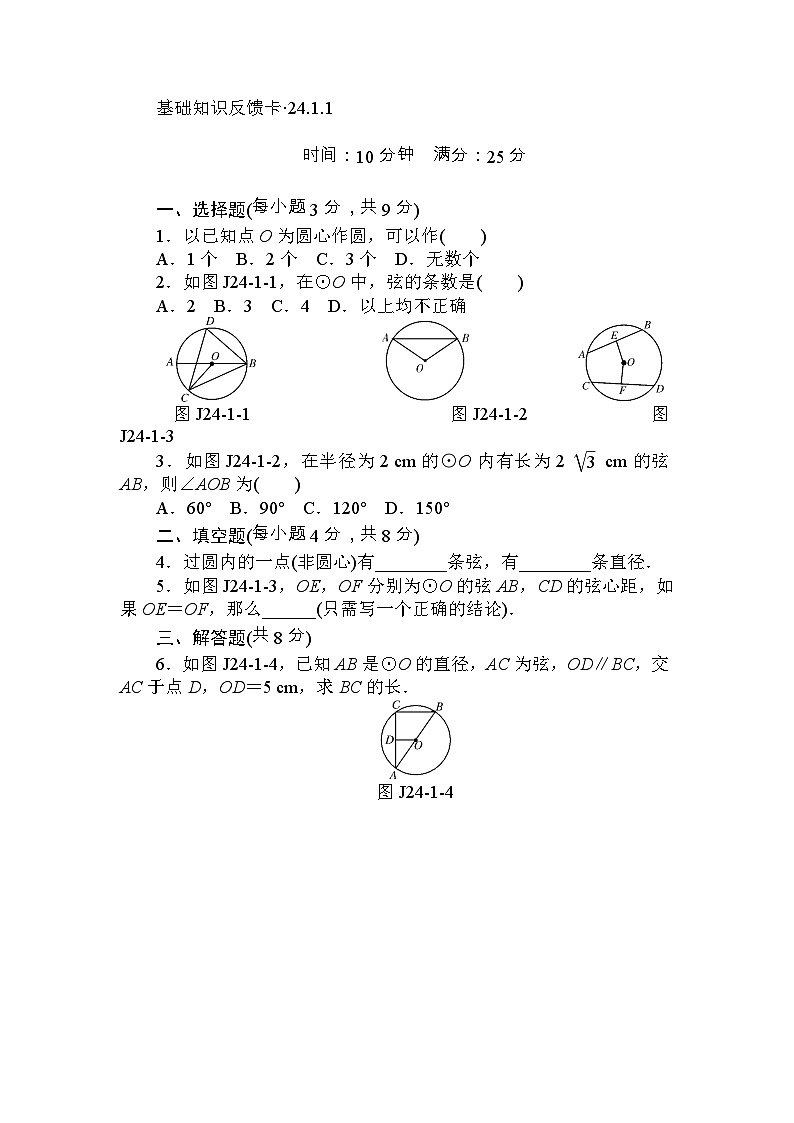 基础知识反馈卡·24.1.1
时间：10分钟　满分：25分
一、选择题(每小题3分，共9分)
1．以已知点O为圆心作圆，可以作(　　)
A．1个　B．2个　C．3个　D．无数个
2．如图J24-1-1，在⊙O中，弦的条数是(　　)
A．2　B．3　C．4　D．以上均不正确
D
A O B
C
A B
O
B
E
A O
C F D
图J24-1-1　图J24-1-2　图
J24-1-3
3．如图J24-1-2，在半径为2 cm的⊙O内有长为2 √3 cm的弦
AB，则∠AOB为(　　)
A．60°　B．90°　C．120°　D．150°
二、填空题(每小题4分，共8分)
4．过圆内的一点(非圆心)有________条弦，有________条直径．
5．如图J24-1-3，OE，OF分别为⊙O的弦AB，CD的弦心距，如
果OE＝OF，那么______(只需写一个正确的结论)．
三、解答题(共8分)
6．如图J24-1-4，已知AB是⊙O的直径，AC为弦，OD∥BC，交
AC于点D，OD＝5 cm，求BC的长．
C B
D O
A
图J24-1-4